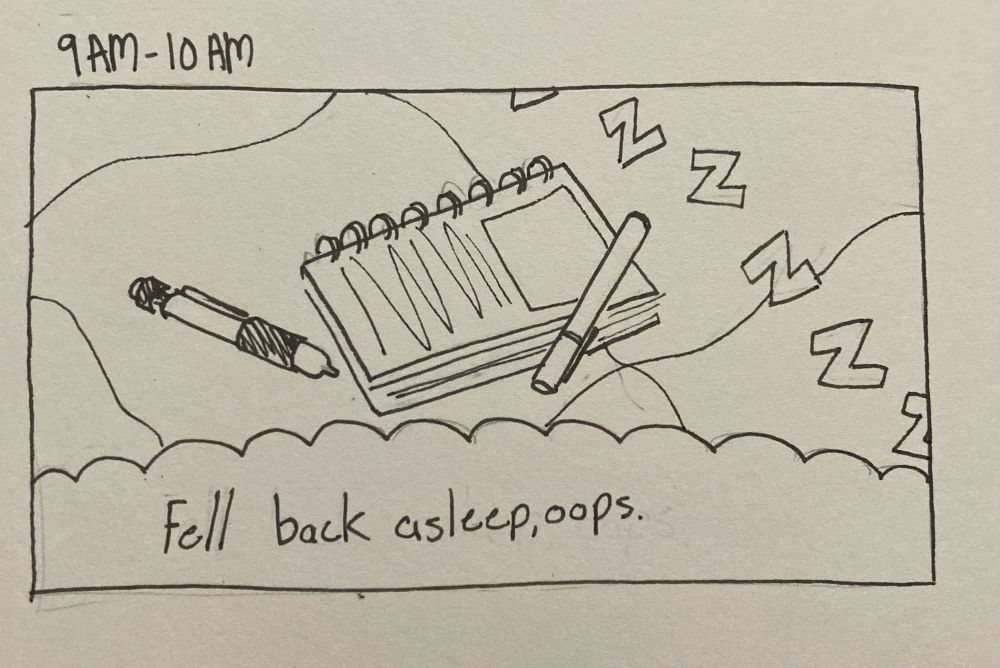 9AM-10AM
Z
Z
Z
Z
Z
Fell back asleep, oops.